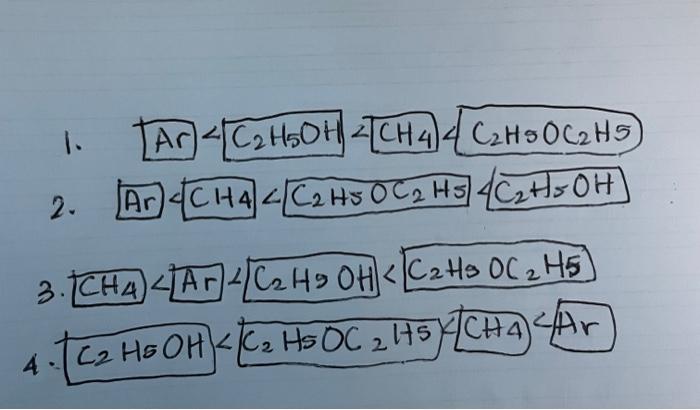 1. Ar < C2H5OH < CH4 < C2H5OC2H5
2. Ar < CH4 < C2H5OC2H5 < C2H5OH
3. CH4 < Ar < C2H5OH < C2H5OC2H5
4. C2H5OH < C2H5OC2H5 < CH4 < Ar